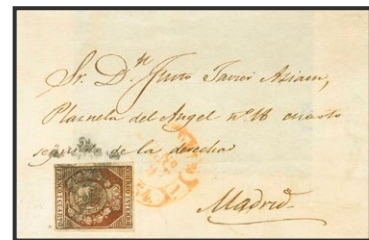 Sr. Dn. Justo Javier Asiain,
Plazuela del Angel nº 18 cuarto
segundo de la derecha
Madrid.